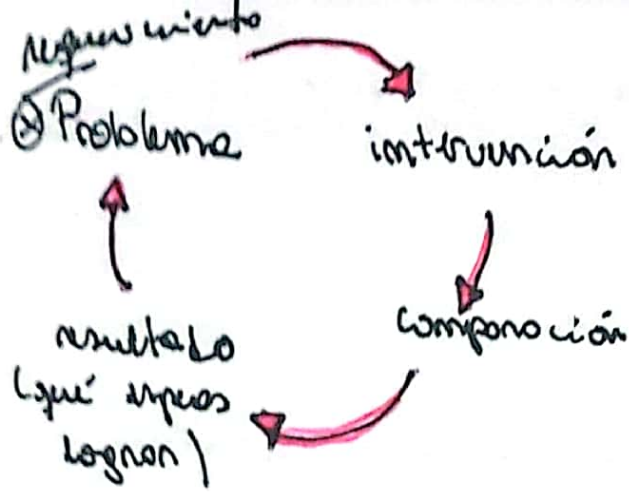 requerimiento
Problema
intervención
comparación
resultado
(qué esperas
lograr)